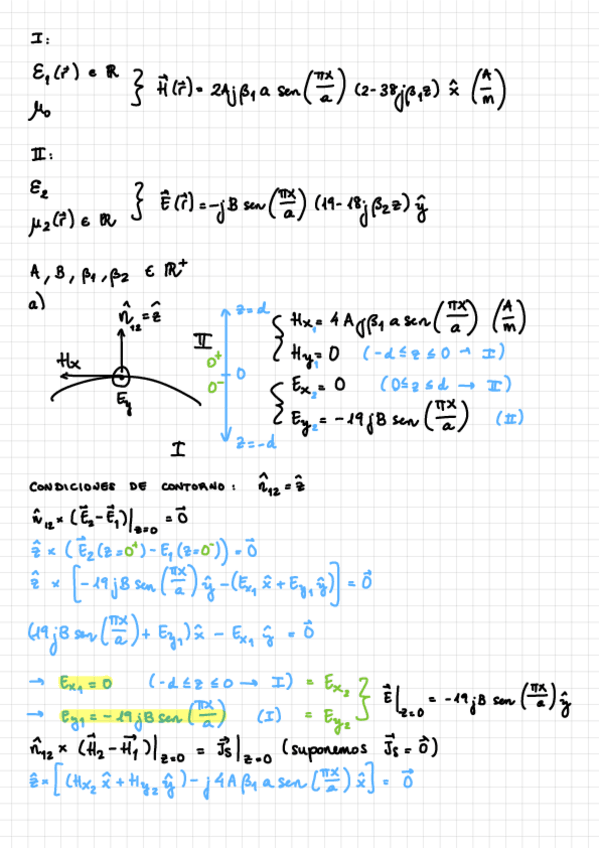 I:
ε₁(r⃗) ∈ ℝ
μ₀
} H⃗(r⃗) = 2Ajβ₁a sen(πx/a) (2-38jβ₁z) x̂ (A/m)
II:
ε₂
μ₂(r⃗) ∈ ℝ
} E⃗(r⃗) = -jB sen(πx/a) (19-18jβ₂z) ŷ
A, B, β₁, β₂ ∈ ℝ⁺
a)
n̂₁₂ = ẑ
Hx
Ey
I
II
z=d
0⁺
0
0⁻
z=-d
{ Hx₁ = 4Ajβ₁a sen(πx/a) (A/m)
Hy₁ = 0 (-d≤z≤0 → I)
{ Ex₂ = 0 (0≤z≤d → II)
Ey₂ = -19jB sen(πx/a) (II)
CONDICIONES DE CONTORNO: n̂₁₂ = ẑ
n̂₁₂ × (E⃗₂-E⃗₁)|z=0 = 0⃗
ẑ × (E⃗₂(z=0⁺) - E₁(z=0⁻)) = 0⃗
ẑ × [-19jB sen(πx/a) ŷ - (Ex₁ x̂ + Ey₁ ŷ)] = 0⃗
(19jB sen(πx/a) + Ey₁) x̂ - Ex₁ ŷ = 0⃗
→ Ex₁ = 0 (-d≤z≤0 → I) = Ex₂
→ Ey₁ = -19jB sen(πx/a) (I) = Ey₂
} E⃗|z=0 = -19jB sen(πx/a) ŷ
n̂₁₂ × (H⃗₂-H⃗₁)|z=0 = J⃗s|z=0 (suponemos J⃗s = 0⃗)
ẑ × [(Hx₂ x̂ + Hy₂ ŷ) - j4Aβ₁a sen(πx/a) x̂] = 0⃗